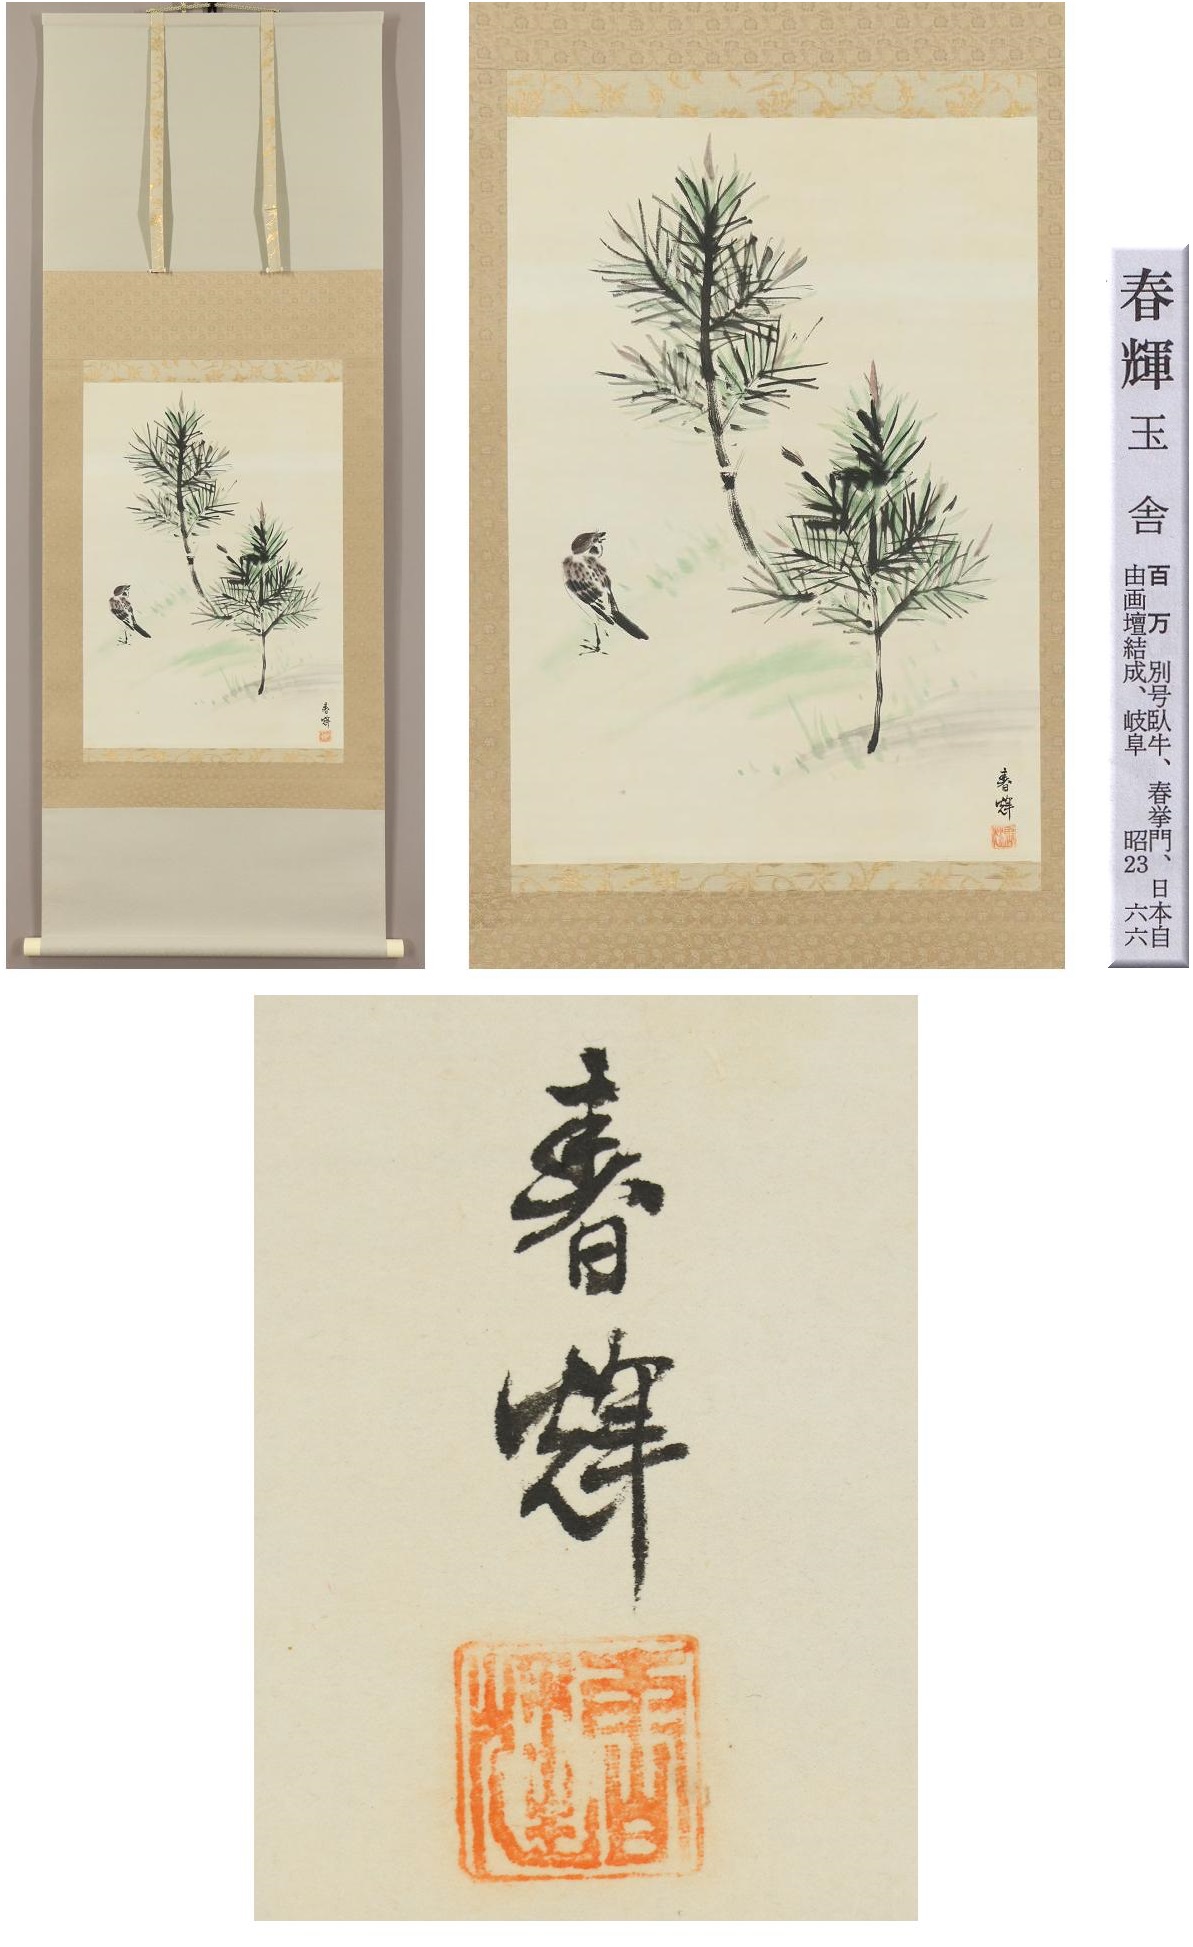 春輝
春輝
春輝 玉舎
百万 別号臥牛、春挙門、日本自
由画壇結成、岐阜 昭23 六六
春
輝